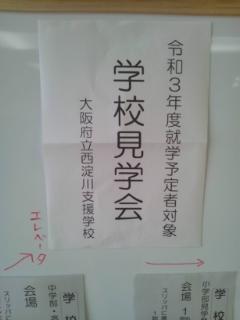 令和３年度就学予定者対象
学校見学会
大阪府立西淀川支援学校
エレベータ
学校
小学部見学
会場　１階
スリッパに
学校
中学部・高
会場
スリッパに